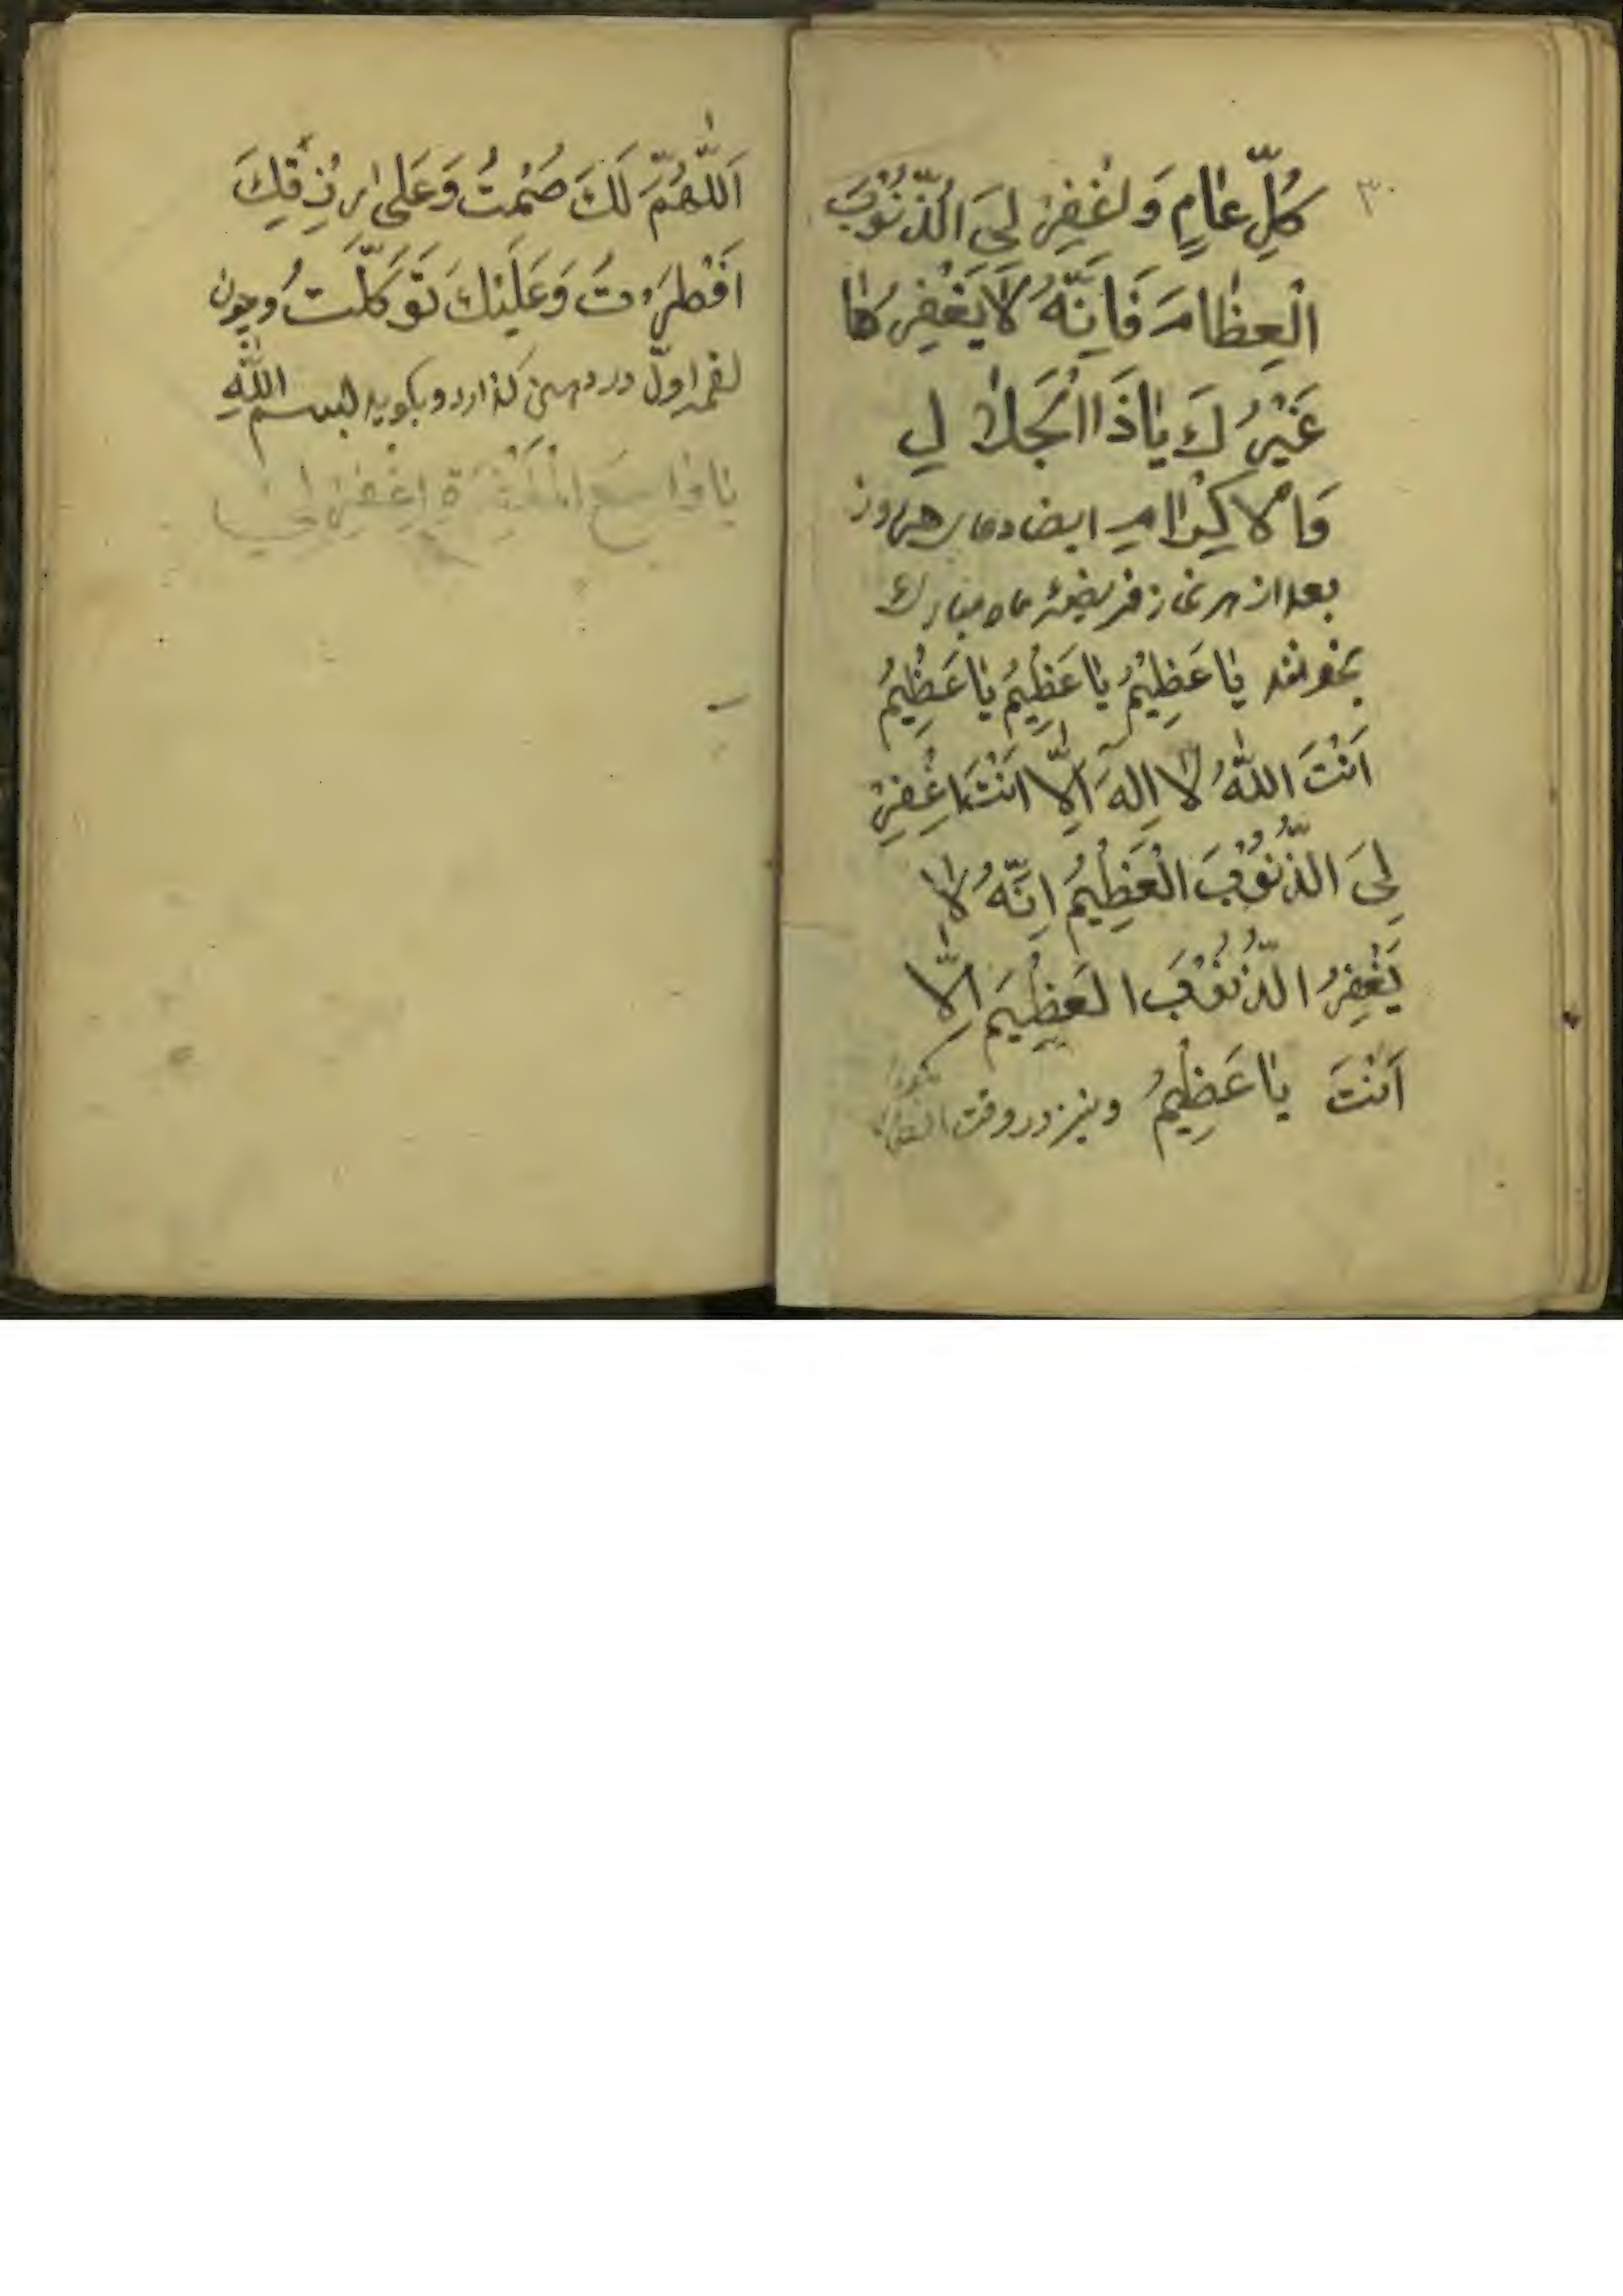 ۳۰
كُلِّ عٰامٍ وَ لغْفِرْ لِىَ الُذّنُوْبَ
الْعِظٰامَ فَاِنَّهُ لَايَغْفِرُ كٰا
غَيْرُكَ يٰا ذَاالْجَلٰا لِ
وَاْلاكِْرٰامِ ايضا دعاى هر روز
بعد از هر نماز فريضهٔ ماه مبارك
بخوانند يٰا عَظِيْمُ يٰا عَظِيْمُ يٰا عَظِيْمُ
اَنْتَ اللّٰهُ لٰا اِلهَ اِلّٰا اَنْتَ اغْفِرْ
لِىَ الذُّنُوْبَ الْعَظِيْمُ اِنَّهُ لٰا
يَغْفِرُ الذُّنُوْبَ الَعظِيْمَ اِلّٰا
اَنْتَ يٰا عَظِيْمُ و نيز در وقت افطار
بگويد
اَللّٰهُمَّ لَكَ صُمْتُ وَ عَلىٰ رِزْقِكَ
اَفْطَرْتُ وَ عَلَيْكَ تَوَكَّلَتُ و چون
لقمه اوّل در دهن گذارد و بگويد بسم اللّٰهِ
يٰا وٰاسِعَ الْمَغْفِرَةِ اِغْفِرْ لِىْ